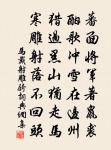 蕃面將軍著鼠裘
酣歌衝雪在邊州
獵過黑山猶走馬
寒雕射落不回頭
馬戴射雕騎詞典網集